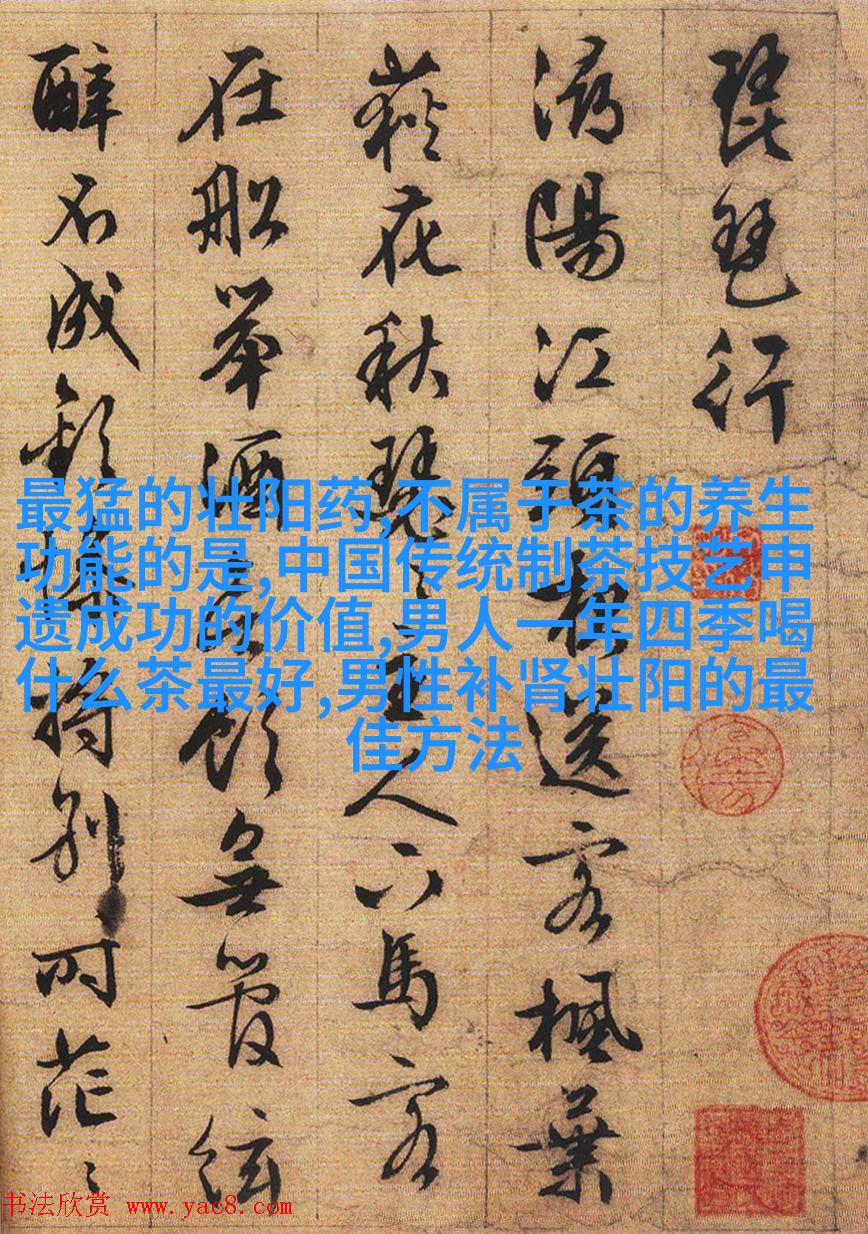 琵琶行
潯陽江頭夜送客楓葉
荻花秋瑟〻主人下馬客
在船舉酒欲飲無管絃
醉不成歡慘將別時茫〻
最猛的壮阳药,不属于茶的养生
功能的是,中国传统制茶技艺申
遗成功的价值,男人一年四季喝
什么茶最好,男性补肾壮阳的最
佳方法
书法欣赏 www.yac8.com